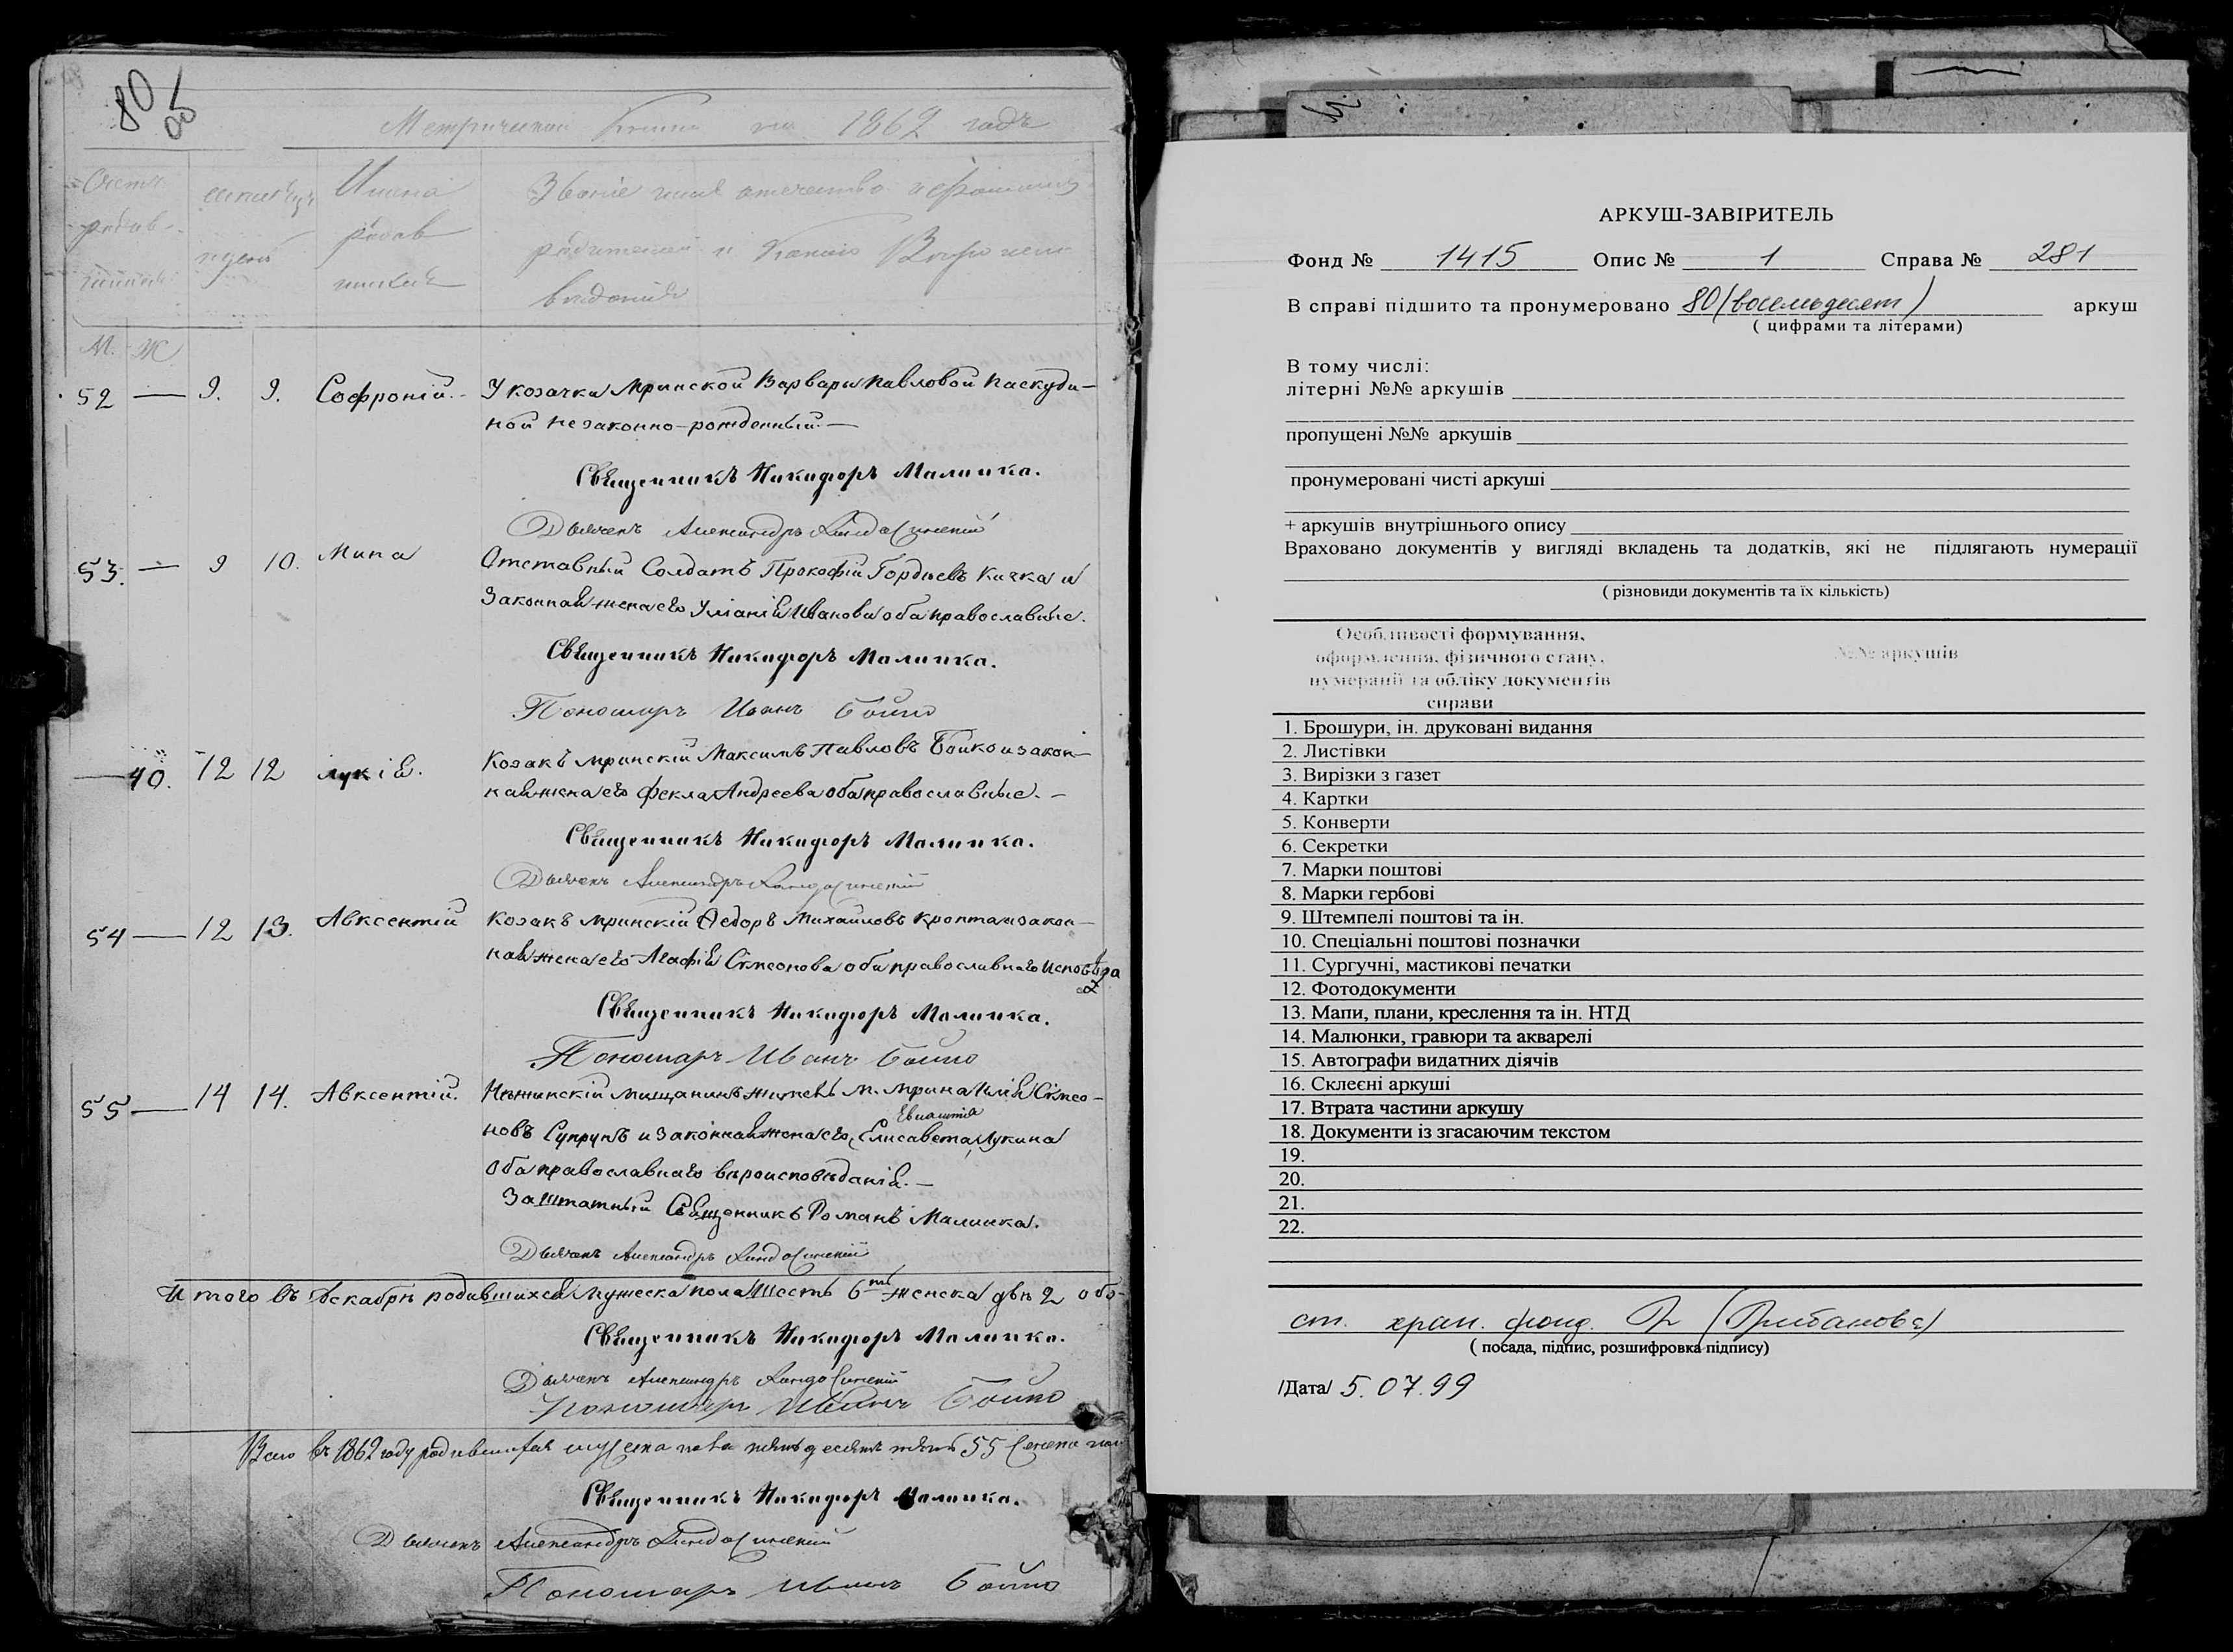 80
об
Метрической Книги на 1862 годъ
Счетъ родив-
шихся
Мѣсяцъ
и день
Имена
родив
шихся
Званіе имя отчество и фамилия
родителей и какого Вѣроиспо
веданія
М. Ж
52 — 9. 9. Софроній. У козачки Мринской Варвары Павловой Паскуди-
ной незаконно-рожденный. —
Священникъ Никифоръ Малинка.
Дьячекъ Александръ
53. — 9 10. Мина Отставный Солдатъ Прокофій Гордѣевъ Кичка и
Законная жена его Уліанія Иванова оба православные.
Священникъ Никифоръ Малинка.
Пономарь Иванъ Бойко
— 40. 12 12 Лукія. Козакъ мринскій Максимъ Павловъ Бойко и закон-
ная жена его Фекла Андреева оба православные. –
Священникъ Никифоръ Малинка.
Дьячекъ Александръ
54 — 12 13. Авксентій Козакъ мринскій Ѳедоръ Михайловъ Кропта и закон-
ная жена его Агафія Сѵмеонова оба православнаго исповѣда
Священникъ Никифоръ Малинка.
Пономарь Иванъ Бойко
55 — 14 14. Авксентій. Нѣжинскій мищанинъ житель м. Мрина Илія Сѵмео-
новъ Супрунъ и законная жена его, Елисавета Лукина
Оба православнаго вѣроисповѣданія. —
Заштатный Священникъ Романъ Малинка.
Дьячекъ Александръ
Итого въ Декабрѣ родившихся мужеска пола шесть 6ть женска двѣ 2 обо-
Священникъ Никифоръ Малинка.
Дьячекъ Александръ
Пономарь Иванъ Бойко
Всего въ 1862 году родившихся мужеска пола пятьдесятъ пять 55 женска пол
Священникъ Никифоръ Малинка.
Дьячекъ Александръ
Пономарь Иванъ Бойко
АРКУШ-ЗАВІРИТЕЛЬ
Фонд № 1415 Опис № 1 Справа № 281
В справі підшито та пронумеровано 80 (восемьдесят) аркуш
( цифрами та літерами)
В тому числі:
літерні №№ аркушів
пропущені №№ аркушів
пронумеровані чисті аркуші
+ аркушів внутрішнього опису
Враховано документів у вигляді вкладень та додатків, які не підлягають нумерації
( різновиди документів та їх кількість)
Особливості формування,
оформлення, фізичного стану,
нумерації та обліку документів
справи
№№ аркушів
1. Брошури, ін. друковані видання
2. Листівки
3. Вирізки з газет
4. Картки
5. Конверти
6. Секретки
7. Марки поштові
8. Марки гербові
9. Штемпелі поштові та ін.
10. Спеціальні поштові позначки
11. Сургучні, мастикові печатки
12. Фотодокументи
13. Мапи, плани, креслення та ін. НТД
14. Малюнки, гравюри та акварелі
15. Автографи видатних діячів
16. Склеєні аркуші
17. Втрата частини аркушу
18. Документи із згасаючим текстом
19.
20.
21.
22.
ст. хран. фонд.
( посада, підпис, розшифровка підпису)
/Дата/ 5.07.99